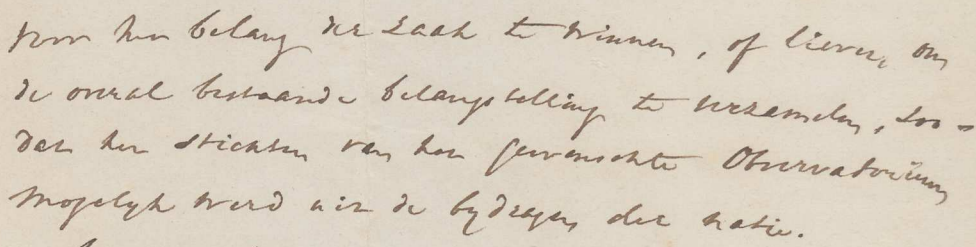 voor het belang der zaak te winnen, of liever, om
de overal bestaande belangstelling te verzamelen, zoo-
dat het stichten van het gewenschte Observatorium
mogelyk werd uit de bydragen der natie.